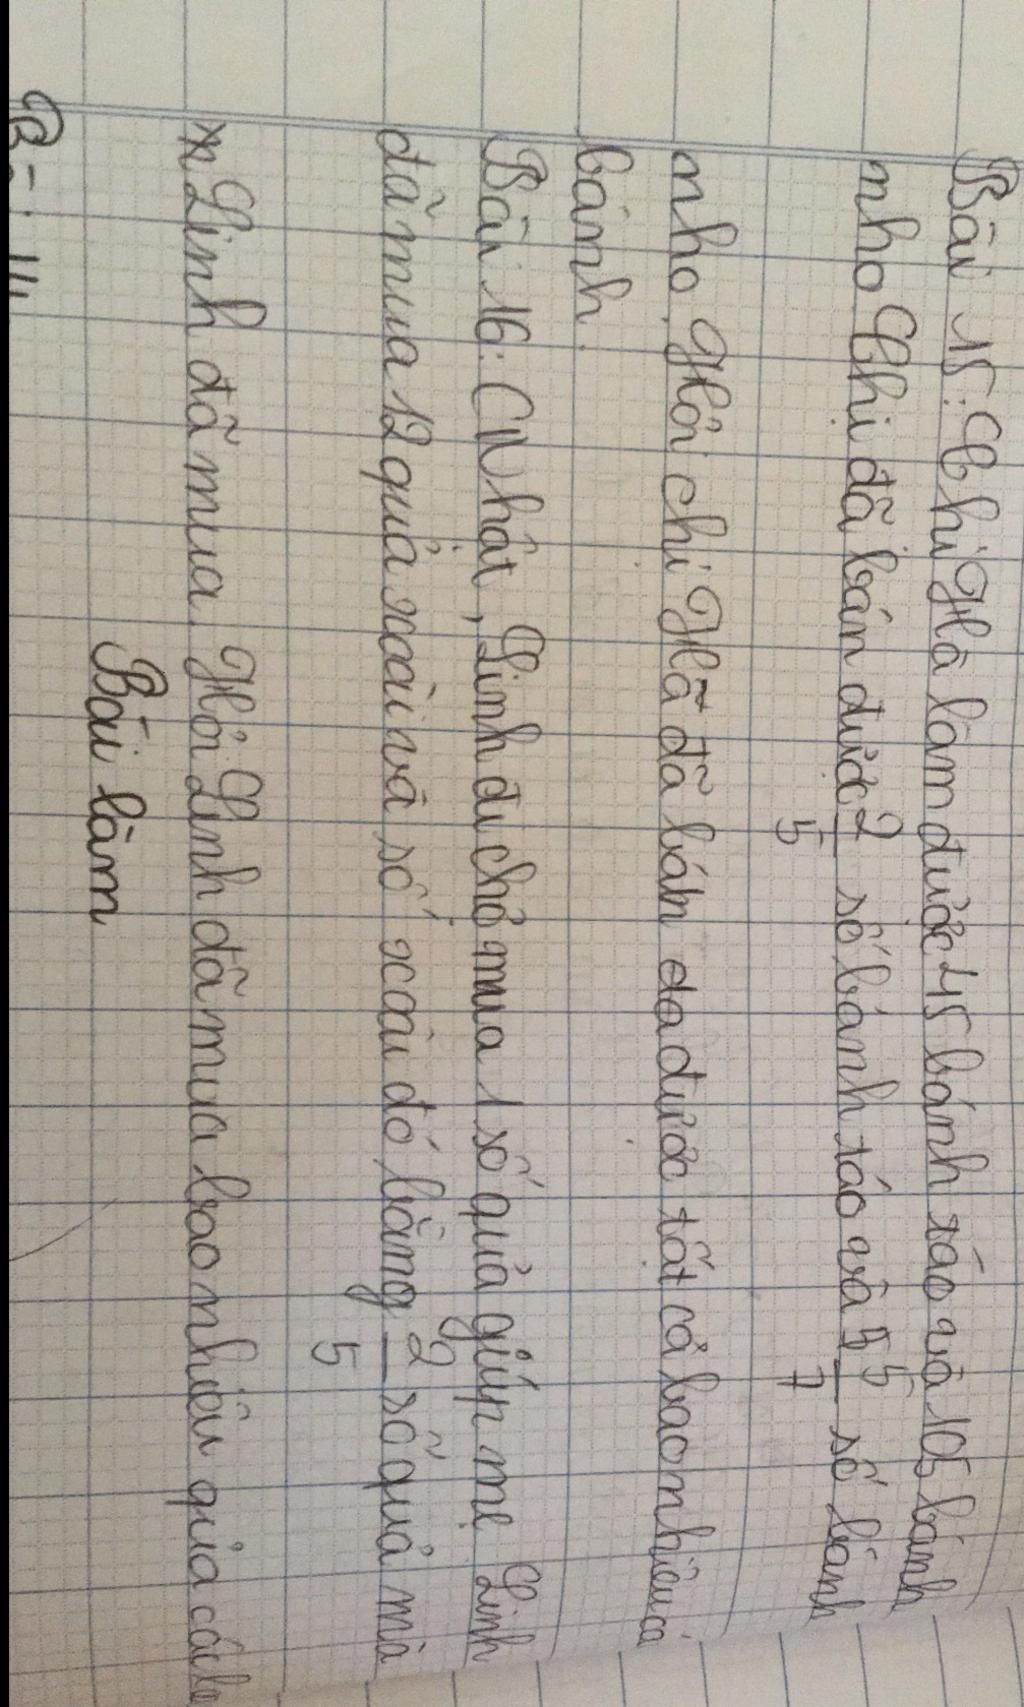 Bài 15: Chị Hà làm được 45 bánh táo và 105 bánh
nho Chị đã bán được 2/5 số bánh táo và 5/7 số bánh
nho. Hỏi chị Hà đã bán được tất cả bao nhiêu cái
bánh.
Bài 16: CN Nhật, Linh đi chợ mua 1 số quả giúp mẹ Linh
đã mua 12 quả xoài và số xoài đó bằng 2/5 số quả mà
Linh đã mua. Hỏi Linh đã mua bao nhiêu quả các
Bài làm